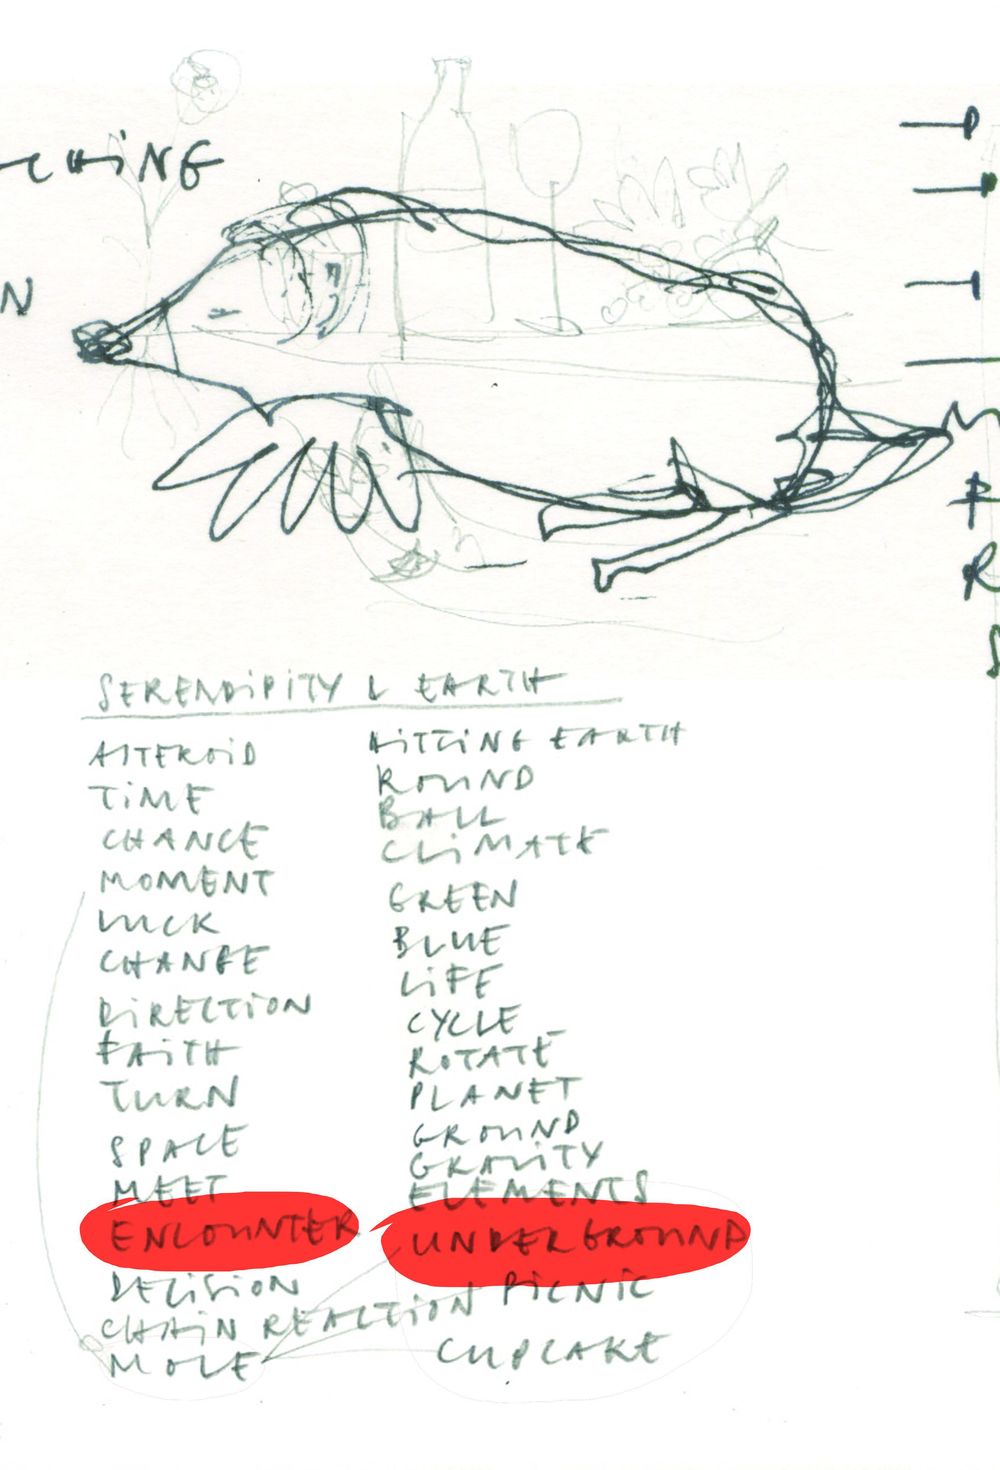 CHING
N
SERENDIPITY & EARTH
ASTEROID
TIME
CHANCE
MOMENT
LUCK
CHANGE
DIRECTION
FAITH
TURN
SPACE
MEET
ENCOUNTER
DECISION
CHAIN REACTION
MOLE
HITTING EARTH
ROUND
BALL
CLIMATE
GREEN
BLUE
LIFE
CYCLE
ROTATE
PLANET
GROUND
GRAVITY
ELEMENTS
UNDERGROUND
PICNIC
CUPCAKE